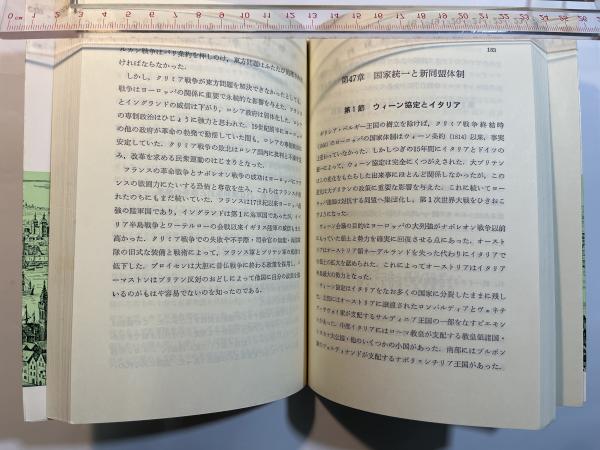 ルカン戦争はパリ条約を押しのけ、東方問題はふたたび
ければならなかった。
しかし、クリミア戦争が東方問題を解決できなかったとしても、
戦争はヨーロッパの関係に重要で永続的な影響を与えた。フランス
とイングランドの威信は下がり、ロシア政府は弱体化した。ロシア
の専制政治はひじょうに強力と思われた。19世紀前半にヨーロッパ
の他の政府が革命の勃発で動揺していた間も、ロシアの専制政治は
安定していた。クリミア戦争の敗北はロシア国内に批判と不満を生
み、改革を求める民衆運動のはじまりとなった。
フランスの革命戦争とナポレオン戦争の成功はヨーロッパにフラ
ンスの戦闘力にたいする恐怖と尊敬を生み、これらはフランスが敗
れたのちにもまだ続いていた。フランスは17世紀以来ヨーロッパ最
強の陸軍国であり、イングランドは第1に海軍国であったが、イベ
リア半島戦争とワーテルローの会戦以来イギリス陸軍の威信もまた
高かった。クリミア戦争での失敗や不手際・司令官の
隊の旧式な装備と戦術によって、フランス軍とブリテン軍の
低下した。プロイセンは大胆に普仏戦争に終わる政策を採用し、パ
ーマストンはブリテン反対のおどしによって他国に自分の政策を
いるのがもはや容易でないのを知ったのである。
183
第47章 国家統一と新同盟体制
第1節 ウィーン協定とイタリア
ギリシア・ベルギー王国の樹立を除けば、クリミア戦争終結時
(1856) のヨーロッパの国家体制はウィーン条約 (1814) 以来、事実
上変わっていなかった。しかしつぎの15年間にイタリアとドイツの
統一によって、ウィーン協定は完全にくつがえされた。大ブリテン
はこの変化をもたらした出来事にほとんど関係しなかったが、この
変化は大ブリテンの政策に重要な影響を与えた。これに続いてヨー
ロッパ諸国は対抗する同盟へ集団化し、第1次世界大戦をひきおこ
すようになった。
ウィーン会議の目的はヨーロッパの大列強がナポレオン戦争以前
にもっていた領土と勢力を確実に回復させる点にあった。オースト
リアはオーストリア領ネーデルランドを失った代わりにイタリアで
領土の拡大を認められた。これによってオーストリアはイタリア
で最大の勢力となった。
ウィーン協定はイタリアをなお多くの国家に分裂したままに残し
た。北部にはオーストリアに譲渡されたロンバルディアとヴェネチ
ア、サヴォイ家が支配するサルディニア王国の一部をなすピエモン
テがあった。中部イタリアにはローマ教皇が支配する教皇領諸国・
トスカナ大公国・他のいくつかの小国があった。南部にはブルボン
家のフェルディナンドが支配するナポリ＝シチリア王国があった。